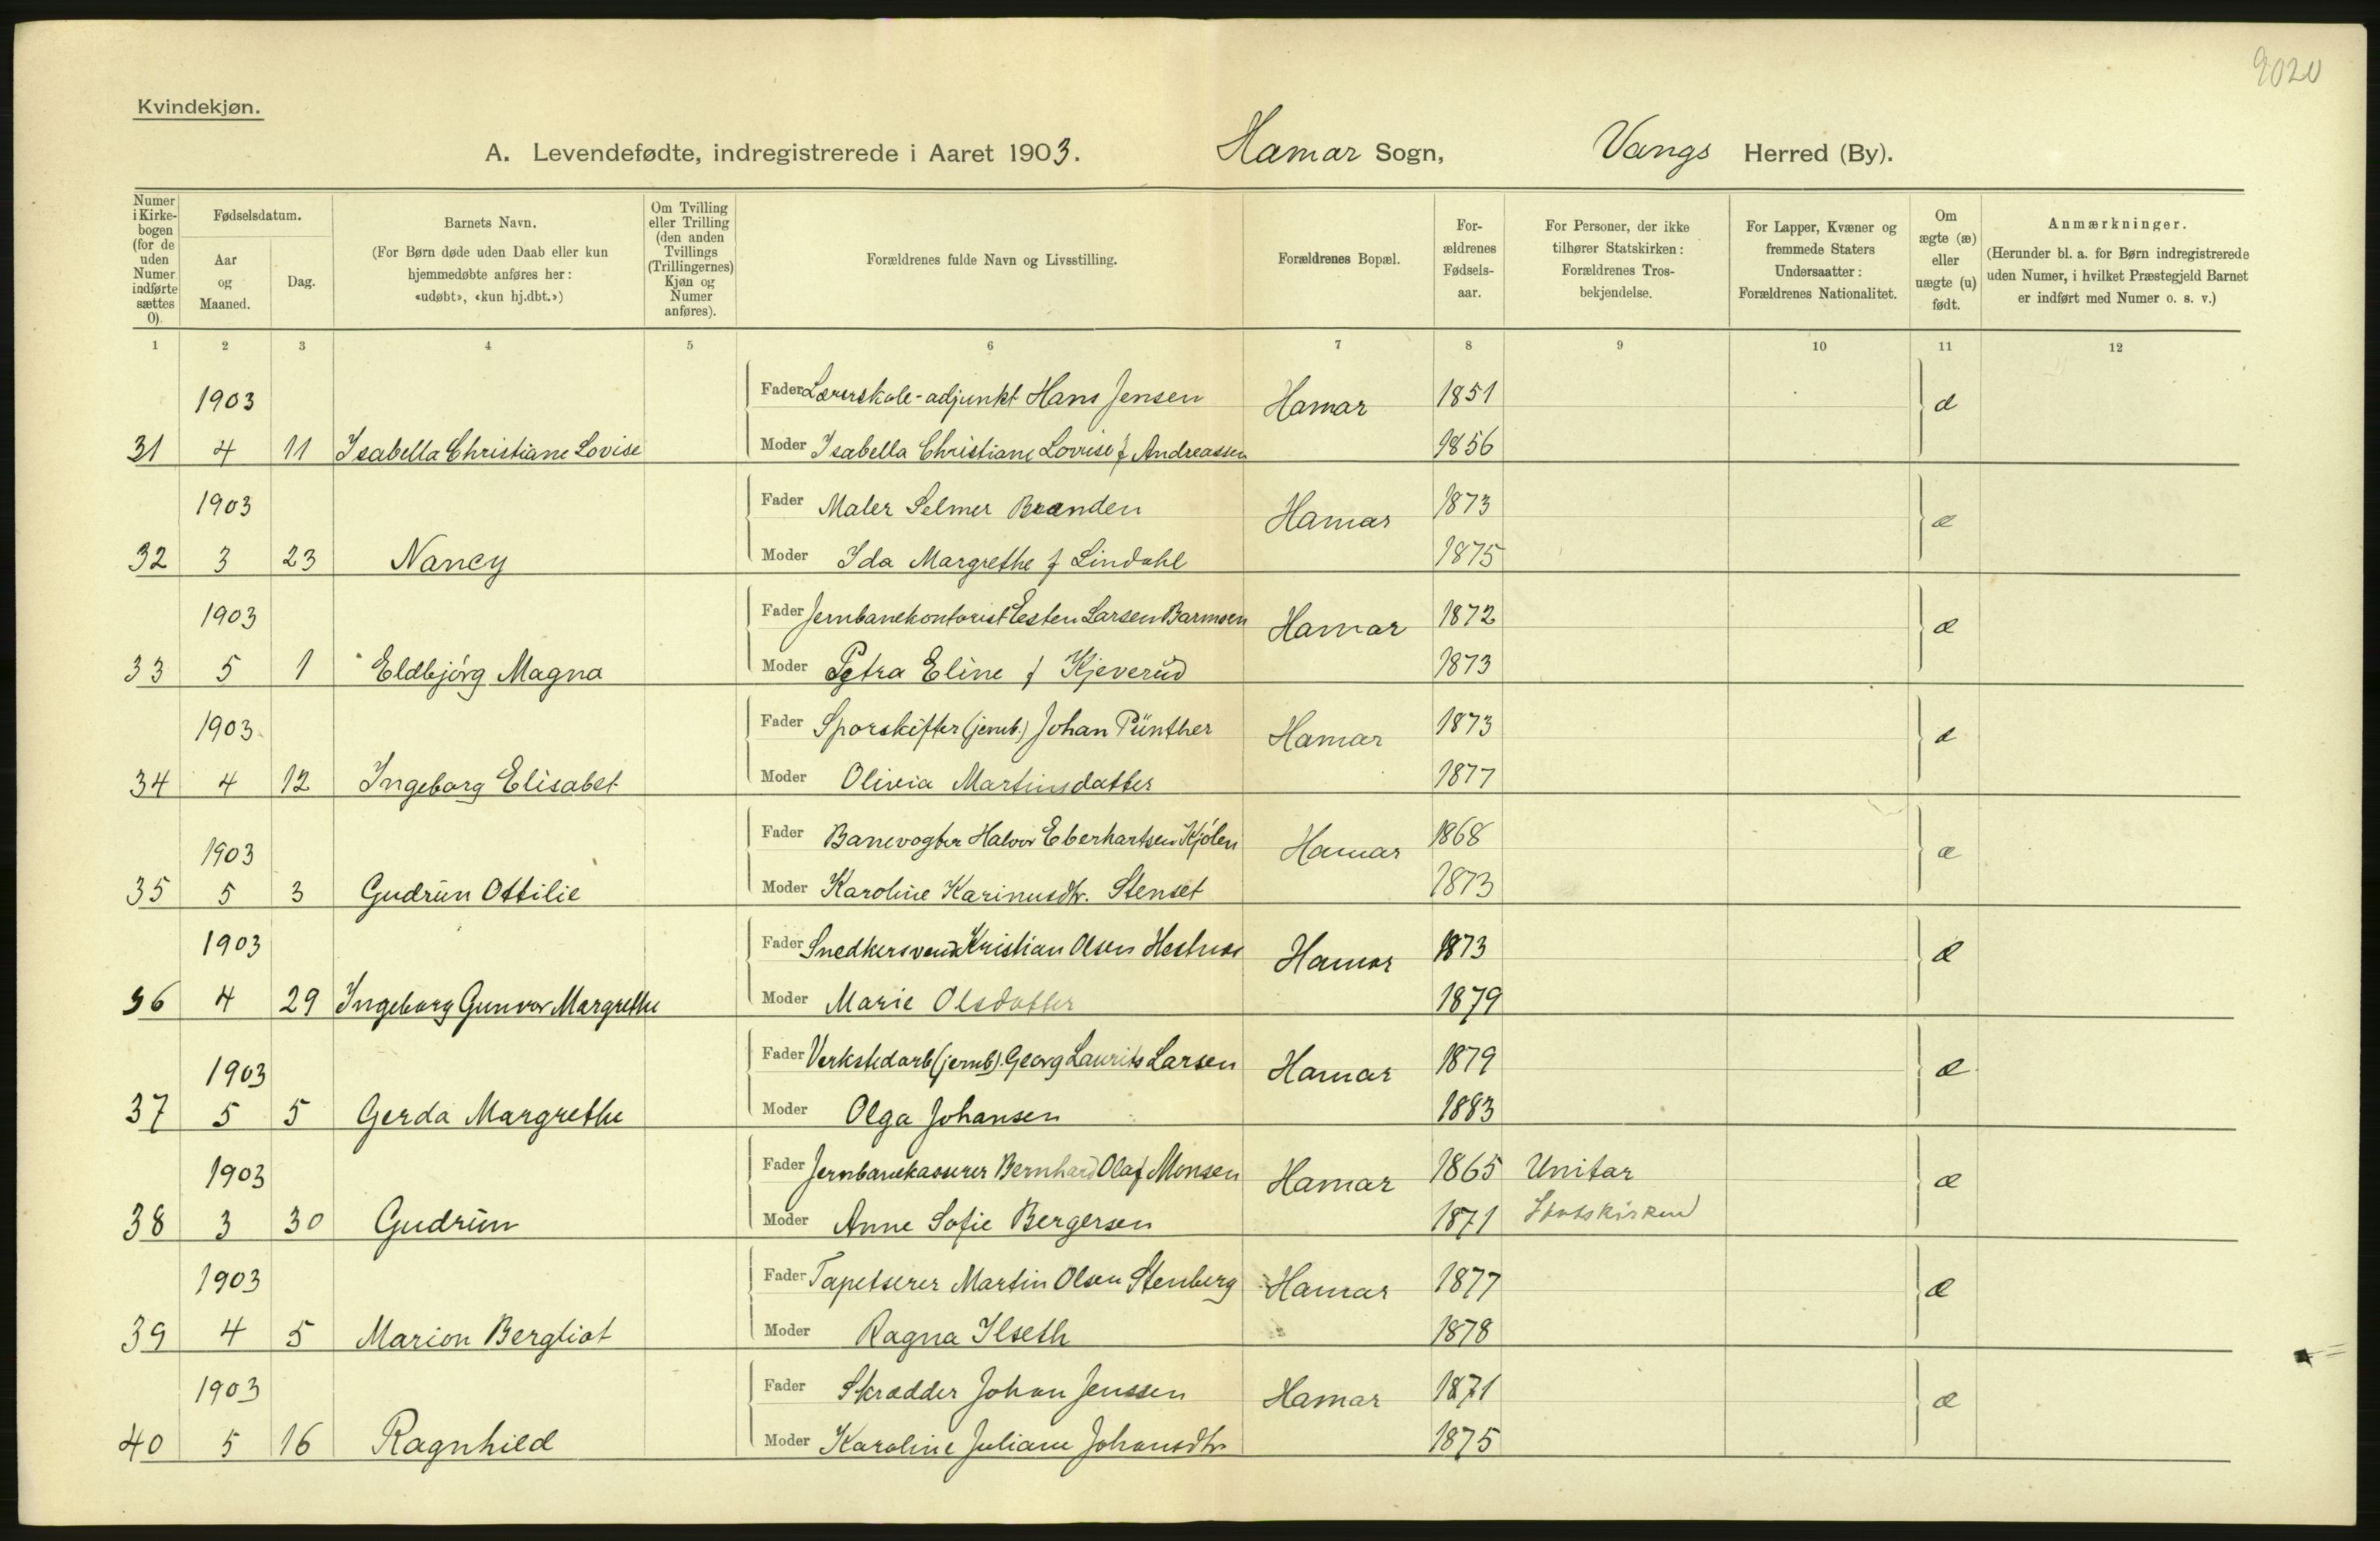 9020
Kvindekjøn.
A. Levendefødte, indregistrerede i Aaret 1903. Hamar Sogn, Vangs Herred (By).
Numer i Kirke-bogen (for de uden Numer indførte sættes 0).
Fødselsdatum.
Aar og Maaned.
Dag.
Barnets Navn.
(For Børn døde uden Daab eller kun hjemmedøbte anføres her: «udøbt», «kun hj.dbt.»)
Om Tvilling eller Trilling (den anden Tvillings (Trillingernes) Kjøn og Numer anføres).
Forældrenes fulde Navn og Livsstilling.
Forældrenes Bopæl.
For-ældrenes Fødsels-aar.
For Personer, der ikke tilhører Statskirken: Forældrenes Tros-bekjendelse.
For Lapper, Kvæner og fremmede Staters Undersaatter: Forældrenes Nationalitet.
Om ægte (æ) eller uægte (u) født.
Anmærkninger.
(Herunder bl. a. for Børn indregistrerede uden Numer, i hvilket Præstegjeld Barnet er indført med Numer o. s. v.)
1 2 3 4 5 6 7 8 9 10 11 12
1903 Fader Lærerskole-adjunkt Hans Jensen Hamar 1851 æ
31 4 11 Isabella Christiane Lovise Moder Isabella Christiane Lovise f Andreassen 1856
1903 Fader Maler Selmer Branden Hamar 1873 æ
32 3 23 Nancy Moder Ida Margrethe f Lindahl 1875
1903 Fader Jernbanekontorist Esten Larsen Barmoen Hamar 1872 æ
33 5 1 Eldbjórg Magna Moder Petra Eline f Kjeverud 1873
1903 Fader Sporskifter (jernb.) Johan Pünther Hamar 1873 æ
34 4 12 Ingeborg Elisabet Moder Olivia Martinsdatter 1877
1903 Fader Banevogter Halvor Eberhartsen Kjólen Hamar 1868 æ
35 5 3 Gudrun Ottilie Moder Karoline Karinusdtr. Stenset 1873
1903 Fader Snedkersvend Kristian Olsen Hamar 1873 æ
36 4 29 Ingeborg Gunvor Margrethe Moder Marie Olsdatter 1879
1903 Fader Verkstedarb (jernb). Georg Laurits Larsen Hamar 1879 æ
37 5 5 Gerda Margrethe Moder Olga Johansen 1883
1903 Fader Jernbanekasserer Bernhard Olaf Monsen Hamar 1865 Unitar æ
38 3 30 Gudrun Moder Anne Sofie Bergersen 1871 Statskirken
1903 Fader Tapetserer Martin Olsen Stenberg Hamar 1877 æ
39 4 5 Marion Bergliot Moder Ragna Ilseth 1878
1903 Fader Skrædder Johan Jenssen Hamar 1871 æ
40 5 16 Ragnhild Moder Karoline Juliane Johansdtr 1875